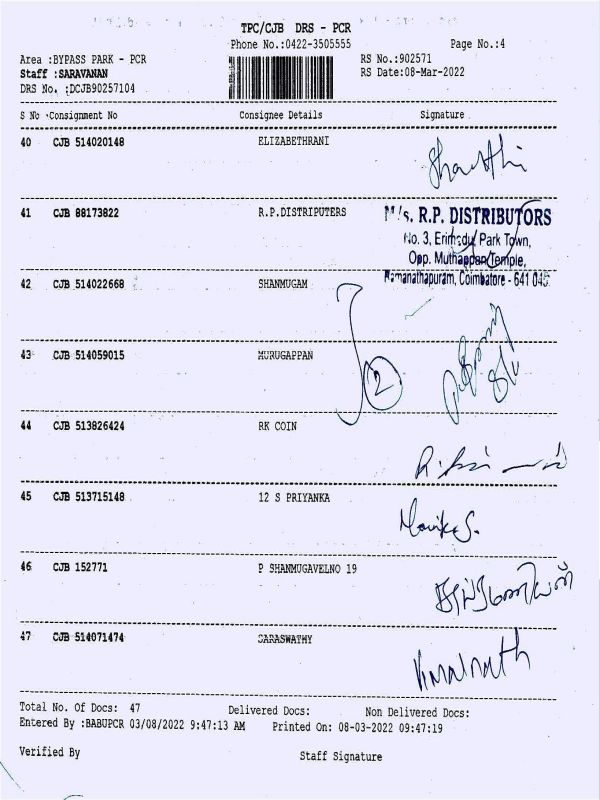 TPC/CJB DRS - PCR
Phone No.:0422-3505555 Page No.:4
Area :BYPASS PARK - PCR RS No.:902571
Staff :SARAVANAN RS Date:08-Mar-2022
DRS No. :DCJB90257104
S No Consignment No Consignee Details Signature
40 CJB 514020148 ELIZABETHRANI
41 CJB 88173822 R.P.DISTRIPUTERS
M/s. R.P. DISTRIBUTORS
No. 3, Erimedu Park Town,
Opp. Muthappan Temple,
Ramanathapuram, Coimbatore - 641 045.
42 CJB 514022668 SHANMUGAM
43 CJB 514059015 MURUGAPPAN
2
44 CJB 513826424 RK COIN
45 CJB 513715148 12 S PRIYANKA
46 CJB 152771 P SHANMUGAVELNO 19
47 CJB 514071474 SARASWATHY
Total No. Of Docs: 47 Delivered Docs: Non Delivered Docs:
Entered By :BABUPCR 03/08/2022 9:47:13 AM Printed On: 08-03-2022 09:47:19
Verified By Staff Signature